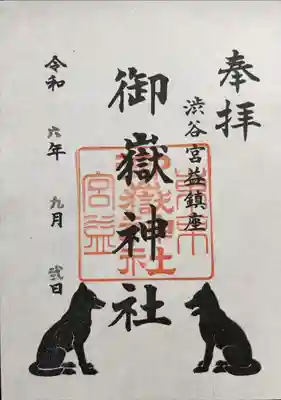 奉拝
渋谷宮益鎮座
御嶽神社
令和六年九月弐日
東京
御嶽神社
宮益